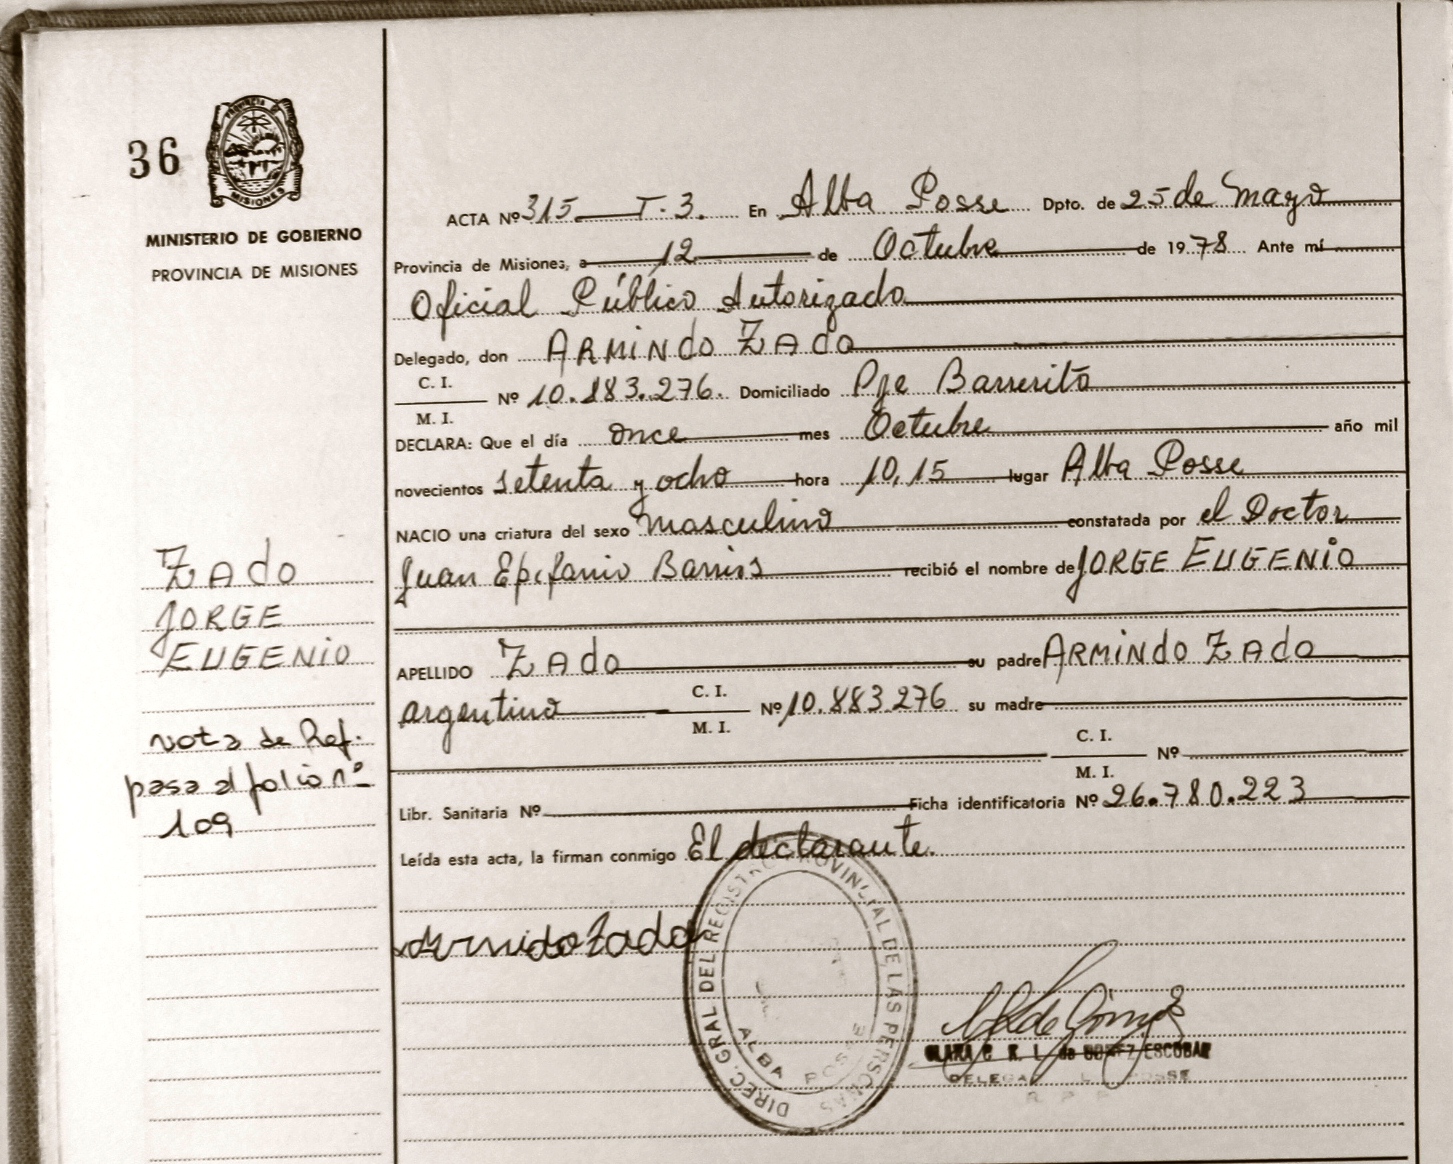 36
PROVINCIA DE
MISIONES
MINISTERIO DE GOBIERNO
PROVINCIA DE MISIONES
ACTA Nº 315 T. 3. En Alba Posse Dpto. de 25 de Mayo
Provincia de Misiones, a 12 de Octubre de 1978 Ante mí
Oficial Público Autorizado
Delegado, don ARMINDO ZADO
C. I.
M. I.
Nº 10.183.276. Domiciliado Pje Barrerito
DECLARA: Que el día once mes Octubre año mil
novecientos setenta y ocho hora 10,15 lugar Alba Posse
NACIO una criatura del sexo masculino constatada por el Doctor
Juan Epifanio Barrios recibió el nombre de JORGE EUGENIO
APELLIDO ZADO su padre ARMINDO ZADO
argentino C. I.
M. I.
Nº 10.883.276 su madre
C. I.
M. I.
Nº
Libr. Sanitaria Nº Ficha identificatoria Nº 26.780.223
Leída esta acta, la firman conmigo El declarante.
ZADO
JORGE
EUGENIO
Nota de Ref.
pasa al folio nº
109
Armido Zado
DIREC. GRAL DEL REGISTRO PROVINCIAL DE LAS PERSONAS
ALBA POSSE
CLARA de GOMEZ ESCOBAR